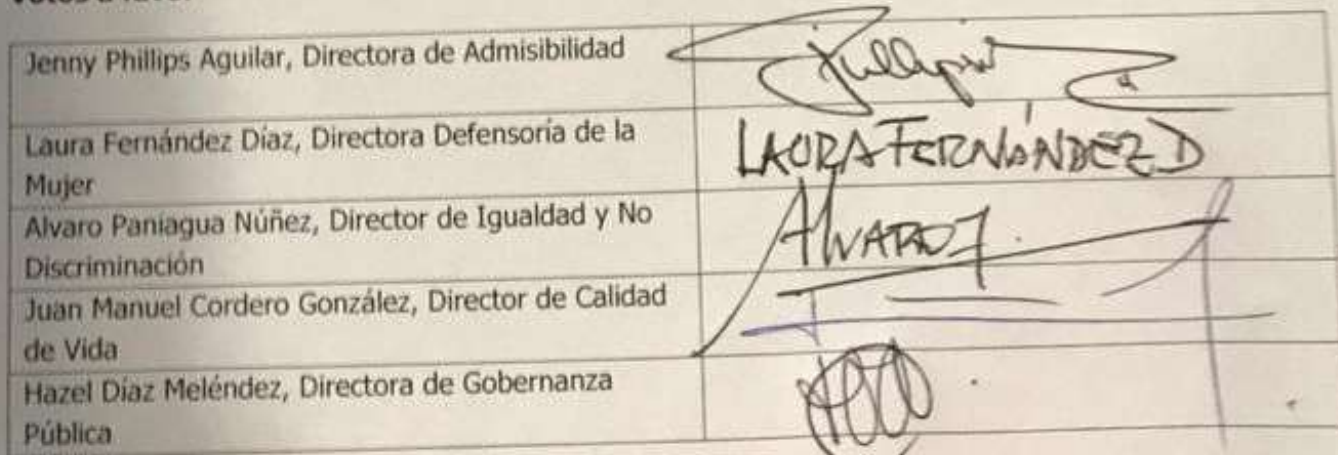 Jenny Phillips Aguilar, Directora de Admisibilidad
Laura Fernández Díaz, Directora Defensoría de la
Mujer
LAURA FERNÁNDEZ D
Alvaro Paniagua Núñez, Director de Igualdad y No
Discriminación
ALVARO
Juan Manuel Cordero González, Director de Calidad
de Vida
Hazel Díaz Meléndez, Directora de Gobernanza
Pública